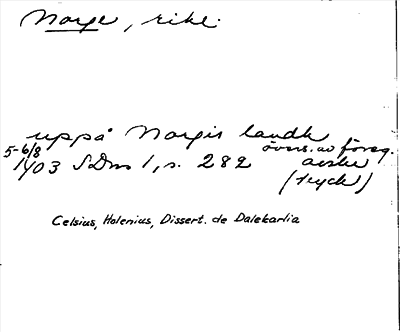 Norge, rike.
uppå Norgis landh
5-6/8 övers. av föreg.
1403 SDns 1, s. 282 avskr
(tryck)
Celsius, Holenius, Dissert. de Dalekarlia